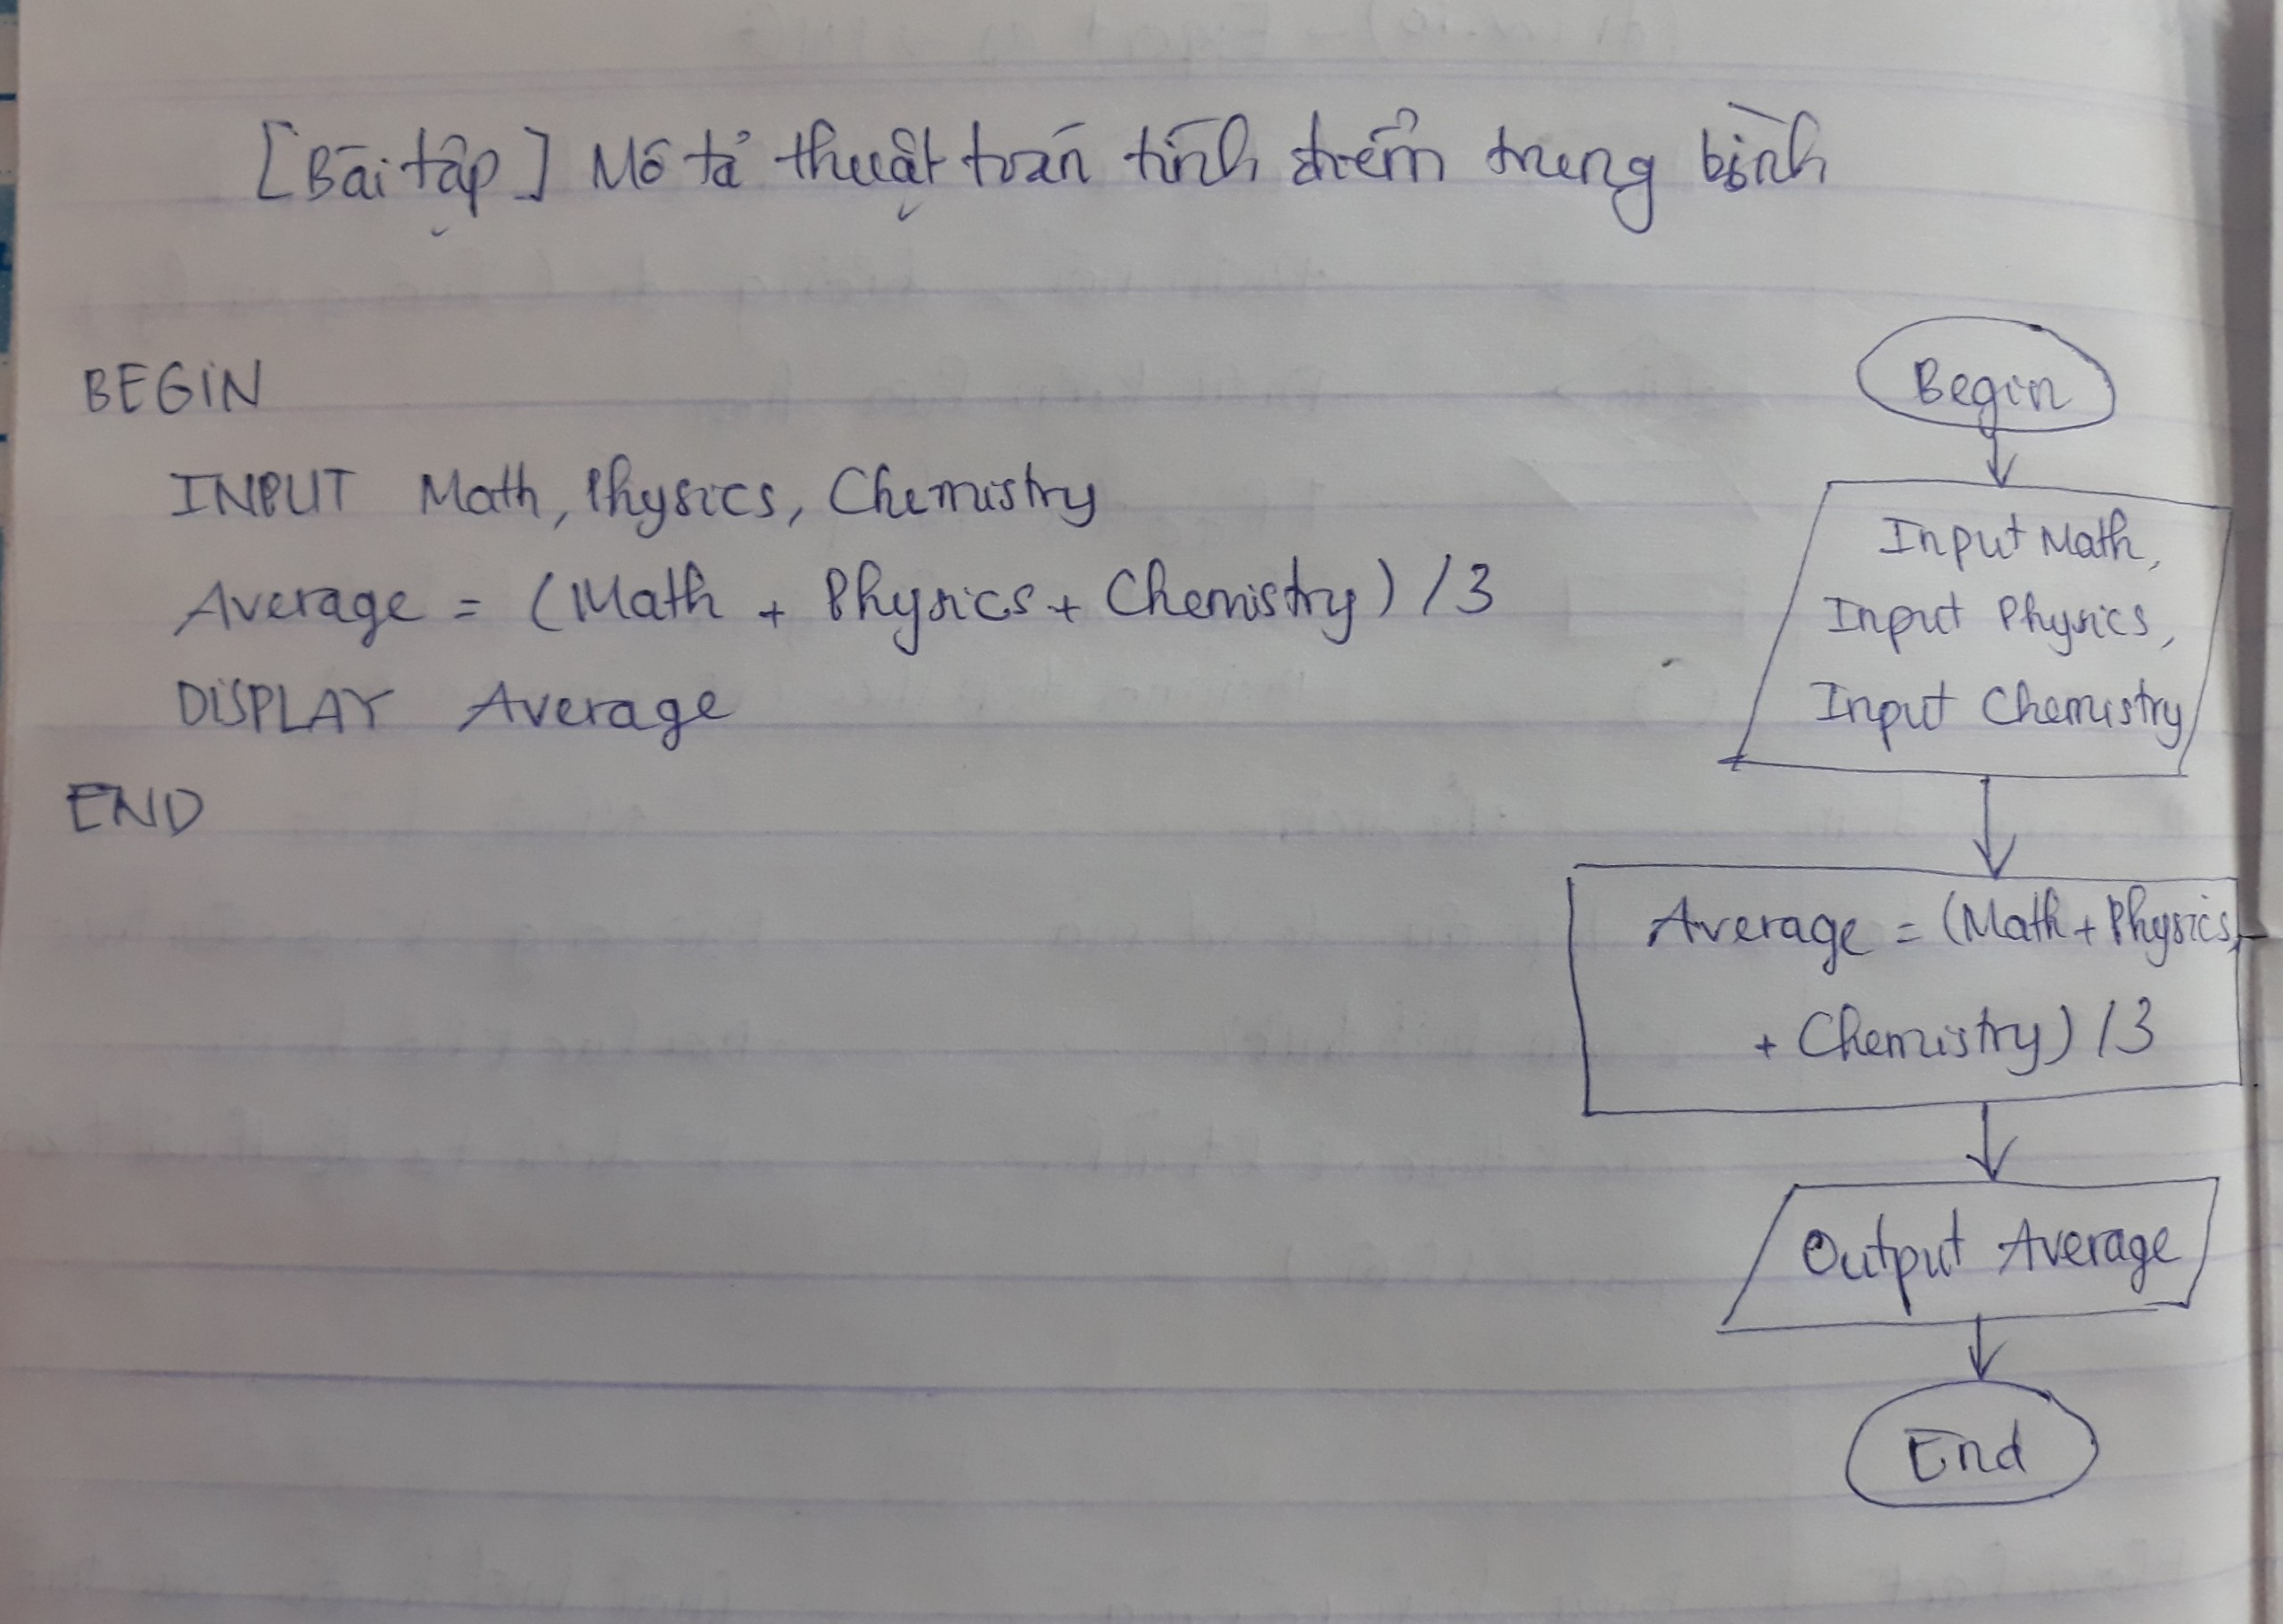 [Bài tập] Mô tả thuật toán tính điểm trung bình
BEGIN
INPUT Math, Physics, Chemistry
Average = (Math + Physics + Chemistry) /3
DISPLAY Average
END
Begin
Input Math,
Input Physics,
Input Chemistry
Average = (Math + Physics
+ Chemistry) /3
Output Average
End